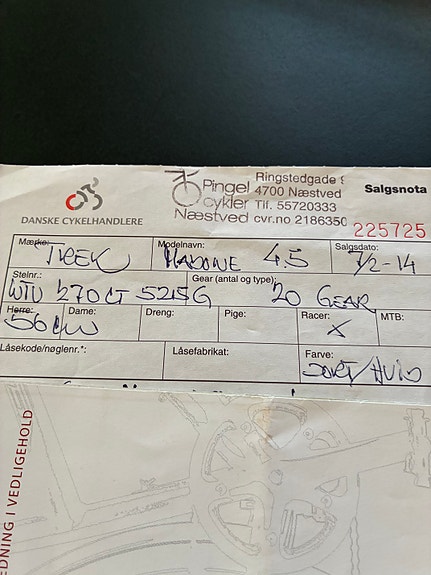 Pingel Ringstedgade
cykler 4700 Næstved
Næstved Tlf. 55720333
cvr.no 2186350
Salgsnota
DANSKE CYKELHANDLERE
225725
Mærke: TREK Modelnavn: MADONE 4.5 Salgsdato: 7/2-14
Stelnr.: WTU 270 CT 5215G Gear (antal og type): 20 GEAR
Herre: 56 cm Dame: Dreng: Pige: Racer: X MTB:
Låsekode/nøglenr.*: Låsefabrikat: Farve: SORT/HVID
EDNING I VEDLIGEHOLD